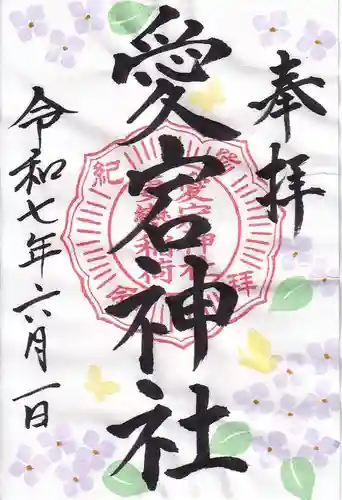 奉拝
愛宕神社
令和七年六月一日